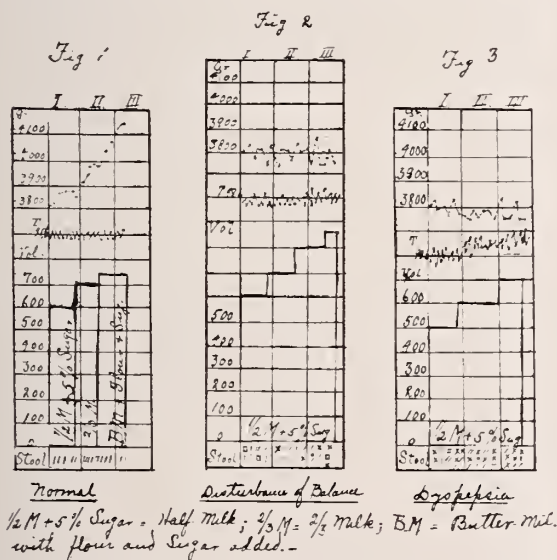 Fig 1
I II III
gr.
4100
4000
3900
3800
T
Vol.
700
600
500
400
300
200
100
0
Stool
1/2 M + 5% Sugar
2/3 M
B.M + Flour + Sug.
Normal
Fig 2
I II III
Gr
4100
4000
3900
3800
T
Vol
500
400
300
200
100
0
1/2 M + 5% Sug
Stool
Disturbance of Balance
Fig 3
I II III
Gr.
4100
4000
3900
3800
T
Vol
600
500
400
300
200
100
0
1/2 M + 5% Sug
Stool
Dyspepsia
1/2 M + 5% Sugar = Half Milk; 2/3 M = 2/3 Milk; B.M = Butter Mil.
with flour and Sugar added.-